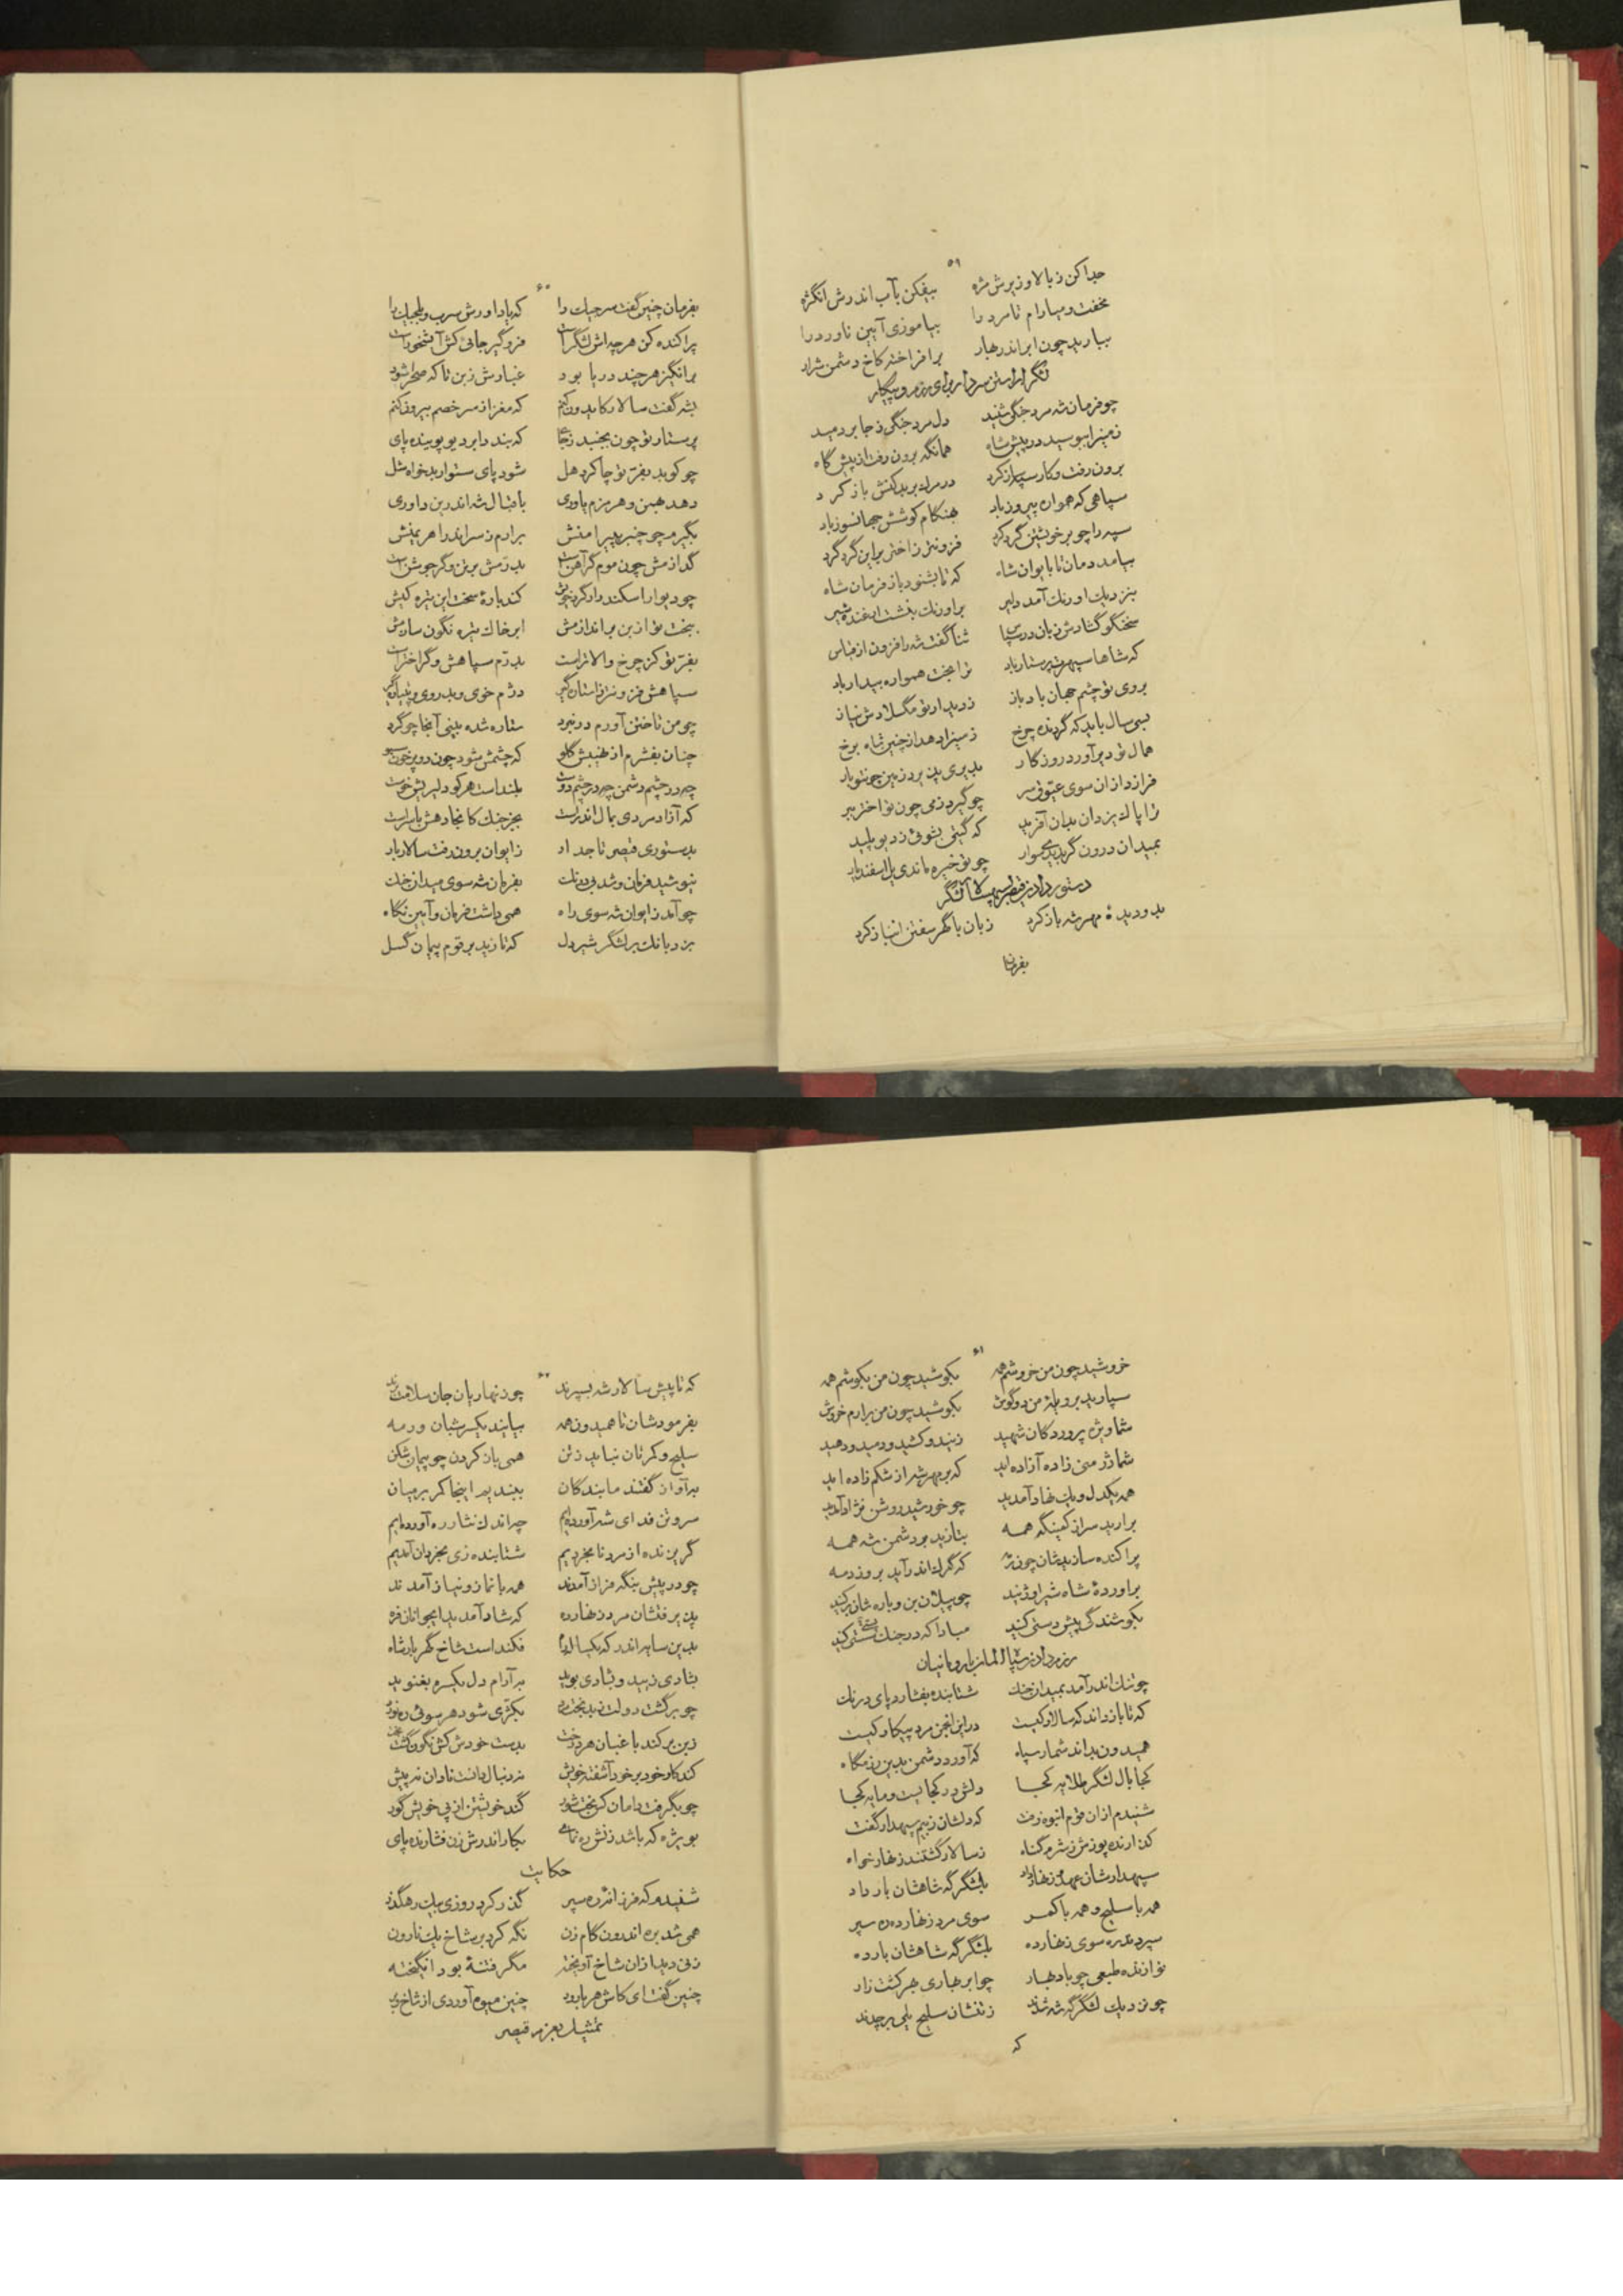 ۵۹
جدا کن ز بالا و زیرش مژه بیفکن بآب اندرش انگژه
نخفت و میارام تا مرد را بیاموزی آیین ناورد را
ببارید چون ابر اندر بهار برافراخته کاخ دشمن شرار
لشگر آراستن سردار برای رزم و پیکار
چو فرمان شه مرد جنگی شنید دل مرد جنگی ز جا بردمید
زمین را ببوسید در پیش شاه همانگه برون رفت از پیش گاه
برون رفت و کار سپه ساز کرد در مرگ بر بدکنش باز کرد
سپاهی که همواره پیروز باد بهنگام کوشش جهانسوز باد
سپه را چو بر خویشتن گرد کرد فزونتر ز اختر براین گرد گرد
بیامد دمان تا بایوان شاه که تا بشنود باز فرمان شاه
بنزدیک اورنگ آمد دلیر بر اورنگ بنشست ارغنده شیر
سخنگو گشادش زبان در سپاس ثنا گفت شه را فزون از قیاس
که شاها سپهرت پرستار باد ترا بخت همواره بیدار باد
بروی تو چشم جهان باد باز ز دیدار تو مگسلادش نیاز
بسی سال باید که گردنده چرخ
همال تو دیر آورد روزگار
فرازد از آن سوی عیوق سر چو گیرد زمی چون تو اختر ببر
ترا پاک یزدان بدان آفرید که گیتی بشوئی ز دیو پلید
بمیدان درون گر بدیدی سوار چو تو خیره ماندی یل اسفندیار
دستور دادن قیصر بسپهسالار لشگر
بدو دیدهٔ مهر شه باز کرد زبان با گهر سفتن انباز کرد
بفرمان
۶۰
بفرمان چنین گفت سرجیک را که باد اورش سرب و بلجیک را
پراکنده کن هرچه اش لشگر است فرو گیر جائی کش آبشخور است
برانگیز هرچند دریا بود غبارش زبن تا که صحرا شود
بشه گفت سالار کایدون کنم که مغز از سر خصم بیرون کنم
پرستار تو چون بجنبد ز جای که بندد ابر دیو پوینده پای
چو کوبد بفر تو چاکر دهل شود پای ستوار بدخواه شل
دهد بهمن و هرمزم یاوری باقبال شه اندرین داوری
بگیرم چو چنبر پیرامنش برآرم ز سر اندر اهریمنش
گدازمش چون موم گر آهن است بدرمش برتن و گر جوشن است
چو دیوارا سکندر ار گرد خویش کند بارهٔ سخت این تیره کیش
ببخت تو از بن براندازمش ابر خاک تیره نگون سازمش
بفر تو کز چرخ والاتر است بدرم سپاهش و گر اختر است
سپاهش فزونتر ز استاره گیر دژم خوی و بد روی و پتیاره گیر
چو من تاختن آورم در نبرد ستاره شده بینی آنجا چو گرد
چنان بفشرم از نهیبش گلو که چشمش شود چون دو پر خون سبو
چه در چشم دشمن چه در چشم دوست بلند است هرکو دلیریش خوست
که آزاد مردی بمال اندر است بجز جنگ کانجا دهش با سر است
بدستوری قیصر تاجدار ز ایوان برون رفت سالار بار
نیوشید فرمان و شد بی درنگ بفرمان شه سوی میدان جنگ
چو آمد ز ایوان شه سوی راه همی داشت فرمان و آیین نگاه
بزد بانگ بر لشگر شیردل که تازید بر قوم پیمان گسل
۶۱
خروشید چون من خروشم همه بکوشید چون من بکوشم همه
سپارید بر ویلهٔ من دو گوش بکوشید چون من برارم خروش
شما ویژه پروردگان شهید زنید و کشید و دمید و دهید
شما ژرمنی زاده آزاده اید که بر مهر شه از شکم زاده اید
همه یکدل و یک نهاد آمدید چو خورشید روشن نژاد آمدید
برارید سر از کمینگه همه بتازید بر دشمن شه همه
پراکنده سازیدشان چون رمه که گرگ اندر آید بروز دمه
برآوردهٔ شاه شیر اوژنید چو پیلان بن و باره شان برکنید
بکوشندگی پیش دستی کنید مبادا که در جنگ سستی کنید
رزم دادن سپاه آلمان با رومانیان
چو تنگ اندر آمد بمیدان جنگ شتابنده بفشارد پای درنگ
که تا باز داند که سالار کیست در این انجمن مرد پیکار کیست
همیدون بداند شمار سپاه که آورد دشمن بدین رزمگاه
کجا بال لشگر طلایه کجا دلش در کجا پست و مایه کجا
شنیدم از آن قوم انبوه زفت که دلشان ز بیم سپهدار گفت
گذارنده پوزش ز شرم گناه ز سالار گشتند زنهار خواه
سپهدارشان عهد و زنهار داد بلشگر گه شاهشان بار داد
همه با سلیح و همه با کمر سوی مرد زنهارده ره سپر
سپردند ره سوی زنهارده بلشگر گه شاهشان بار ده
نوازنده طبعی چو باد بهار چو ابر بهاری بهر کشت زار
چو نزدیک لشگر گه شه شدند ز تنشان سلیح یلی بر چدند
که
۶۲
که تا پیش سالار شه بسپرند چو زنهاریان جان سلامت برند
بفرمودشان تا همیدون همه بیایند یکسر شبان و رمه
سلیح و کمرتان نباید ز تن همی باز کردن چو پیمان شکن
برآواز گفتند ما بندگان ببندیم اینجا کمر بر میان
سر و تن فدای شه آورده ایم چه اندک نثار ره آورده ایم
گریزنده از مرد نابخردیم شتابنده زی بخردان آمدیم
چو در پیش بنگه فراز آمدند همه با نماز و نیاز آمدند
پذیرفتشان مرد زنهارده که شاد آمدید ای جوانان فره
بدین سایه اندر که یکسال و ماه فکنده است شاخ گهربار شاه
بشادی زیید و بشادی بوید بر آرام دل یکسره بغنوید
چو برگشت دولت ز بدبخت مرد بکژی شود هر سوئی ره نورد
زبن برکند باغبان هر درخت بدست خودش کش نگون گشت بخت
کند کار خود بر خود آشفته خویش نه دنبال دانست نادان نه پیش
چو بگرفت دامان کس بخت شور کند خویشتن از پی خویش گور
بویژه که باشد زنش رهنمای بکار اندرش زن فشارنده پای
حکایت
شنیدم که فرزانه ره سپر گذر کرد روزی بیک رهگذر
همی شد بره اندرون گام زن نگه کرد بر شاخ یک نارون
زنی دید از آن شاخ آویخته مگر فتنهٔ بود انگیخته
چنین گفت ای کاش هر بارور چنین میوه آوردی از شاخ بر
تمثیل بعزم قیصر